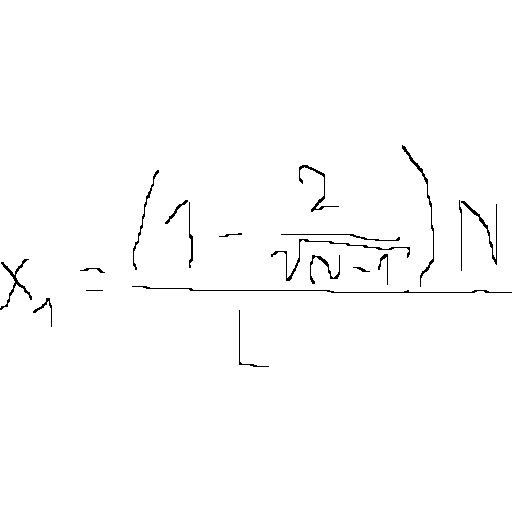 x_1 = \frac{(1 - \frac{2}{\sqrt{n-1}}) N}{L}